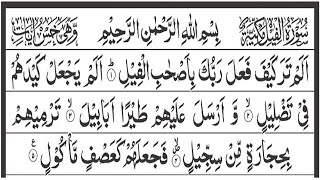 سُوْرَةُ الْفِيْلِ مَكِّيَّةٌ بِسْمِ اللّٰهِ الرَّحْمٰنِ الرَّحِيْمِ وَّهِيَ خَمْسُ اٰيَاتٍ
اَلَمْ تَرَ كَيْفَ فَعَلَ رَبُّكَ بِاَصْحٰبِ الْفِيْلِ ۝۱ اَلَمْ يَجْعَلْ كَيْدَهُمْ
فِيْ تَضْلِيْلٍ ۝۲ وَّ اَرْسَلَ عَلَيْهِمْ طَيْرًا اَبَابِيْلَ ۝۳ تَرْمِيْهِمْ
بِحِجَارَةٍ مِّنْ سِجِّيْلٍ ۝۴ فَجَعَلَهُمْ كَعَصْفٍ مَّاْكُوْلٍ ۝۵